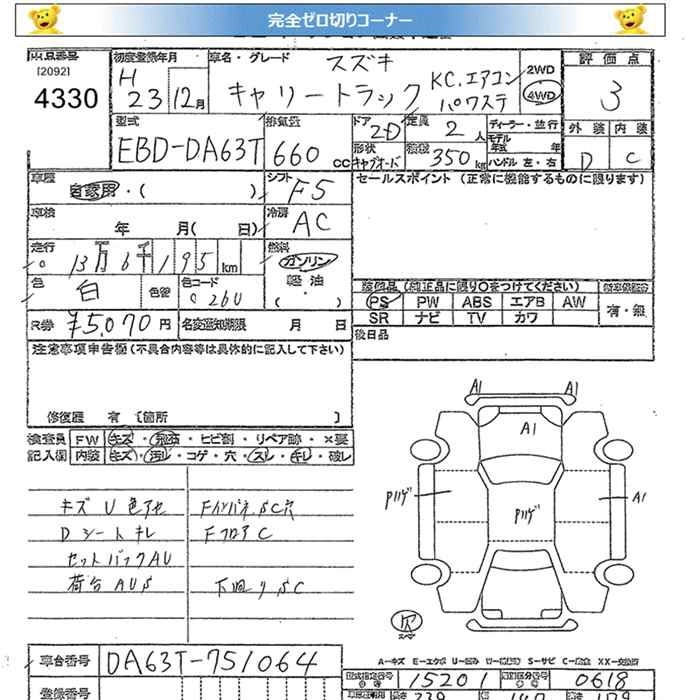 完全ゼロ切りコーナー
出品番号
[2092]
4330
初度登録年月
H 23 12月
車名・グレード
スズキ
キャリートラック
KC.エアコン
パワステ
2WD
4WD
評価点
3
外装 内装
D C
型式
EBD-DA63T
排気量
660 cc
ドア
2D
定員
2人
ディーラー・並行
モデル
年式 年
形状
キャブオーバ
積載
350 kg
ハンドル 左・右
車歴
自家用・( )
シフト
F5
セールスポイント (正常に機能するものに限ります)
車検
年 月( 日)
冷房
AC
走行
0 13万6千195 km
燃料
ガソリン
軽油
・( )
色
白
色替
色コード
26U
装備品 (純正品に限り○をつけてください)
PS PW ABS エアB AW
SR ナビ TV カワ
有・無
R券 ¥5,070円
名変通知期限 月 日
後日品
注意事項申告欄(不具合内容等は具体的に記入して下さい)
修復歴 有 [箇所 ]
検査員 FW キズ・飛石・ヒビ割・リペア跡・×要
記入欄 内装 キズ・汚レ・コゲ・穴・スレ・キレ・破レ
キズ U 色アセ
Dシートキレ
セットバックAU
荷台AUS
FインパネSC穴
FフロアC
下回りSC
A1 A1
A1
Pハゲ Pハゲ A1
欠
スペア
A-キズ E-エクボ U-凹み W-補修跡 S-サビ C-腐食 XX-交換済
車台番号 DA63T-751064
型式指定番号 15201
類別区分番号 0618
登録番号